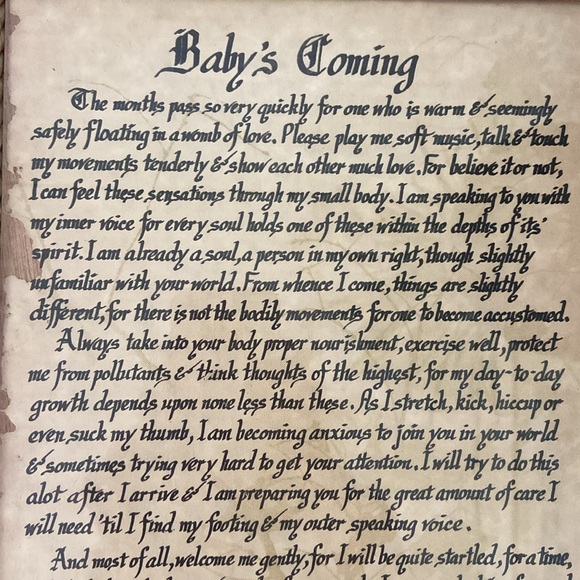 Baby's Coming
The months pass so very quickly for one who is warm & seemingly
safely floating in a womb of love. Please play me soft music, talk & touch
my movements tenderly & show each other much love. For believe it or not,
I can feel these sensations through my small body. I am speaking to you with
my inner voice for every soul holds one of these within the depths of its'
spirit. I am already a soul, a person in my own right, though slightly
unfamiliar with your world. From whence I come, things are slightly
different, for there is not the bodily movements for one to become accustomed.
Always take into your body proper nourishment, exercise well, protect
me from pollutants & think thoughts of the highest, for my day-to-day
growth depends upon none less than these. As I stretch, kick, hiccup or
even suck my thumb, I am becoming anxious to join you in your world
& sometimes trying very hard to get your attention. I will try to do this
alot after I arrive & I am preparing you for the great amount of care I
will need 'til I find my footing & my outer speaking voice.
And most of all, welcome me gently, for I will be quite startled, for a time,